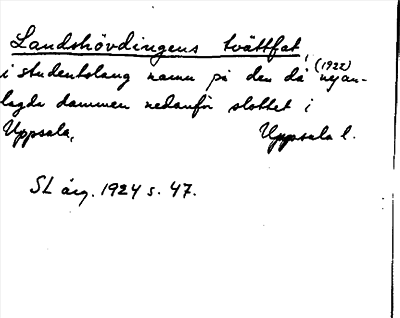 Landshövdingens tvättfat,
i studentslang namn på den då (1922) nyan-
lagda dammen nedanför slottet i
Uppsala. Uppsala l.
SL årg. 1924 s. 47.